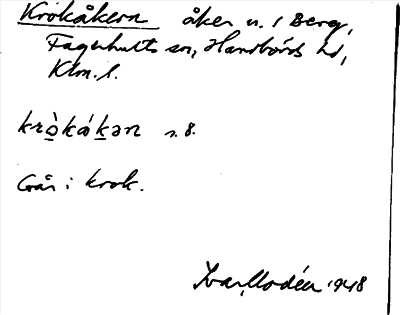 Krokåkern åker n. 1 Berg,
Fagerhults sn, Handbörds hd,
Klm. l.
kròkákən s. 8.
Går i krok.
Ivar Modéer 1948